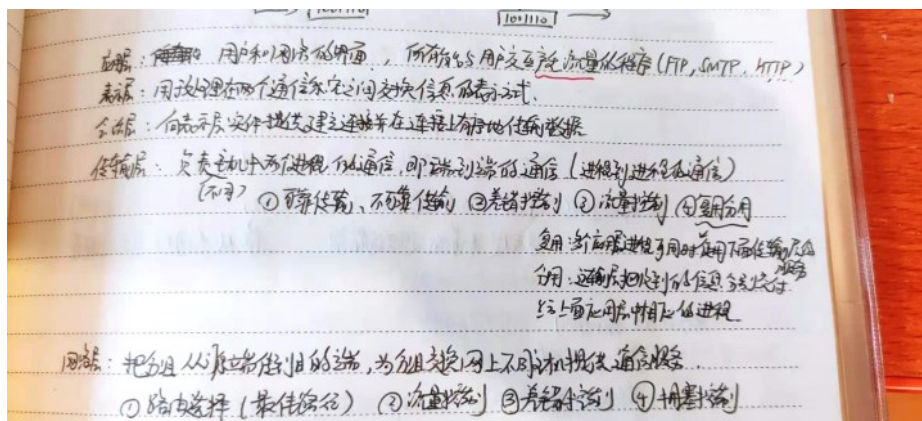 1001110
应用层：用户和网络的界面，所有能与用户交互产生流量的程序(FTP, SMTP, HTTP)
表示层：用于处理在两个通信系统之间交换信息的表示方式.
会话层：向表示层实体提供建立连接并在连接上有序地传输数据
传输层：负责主机中两个进程的通信，即端到端的通信(进程到进程的通信)
(不同)
①可靠传输、不可靠传输 ②差错控制 ③流量控制 ④复用分用
复用：多个应用层进程可同时使用下面传输层的
服务
分用：运输层把收到的信息分别交付
给上面应用层中相应的进程
网络层：把分组从源端传到目的端，为分组交换网上不同主机提供通信服务.
①路由选择(最佳路径) ②流量控制 ③差错控制 ④拥塞控制